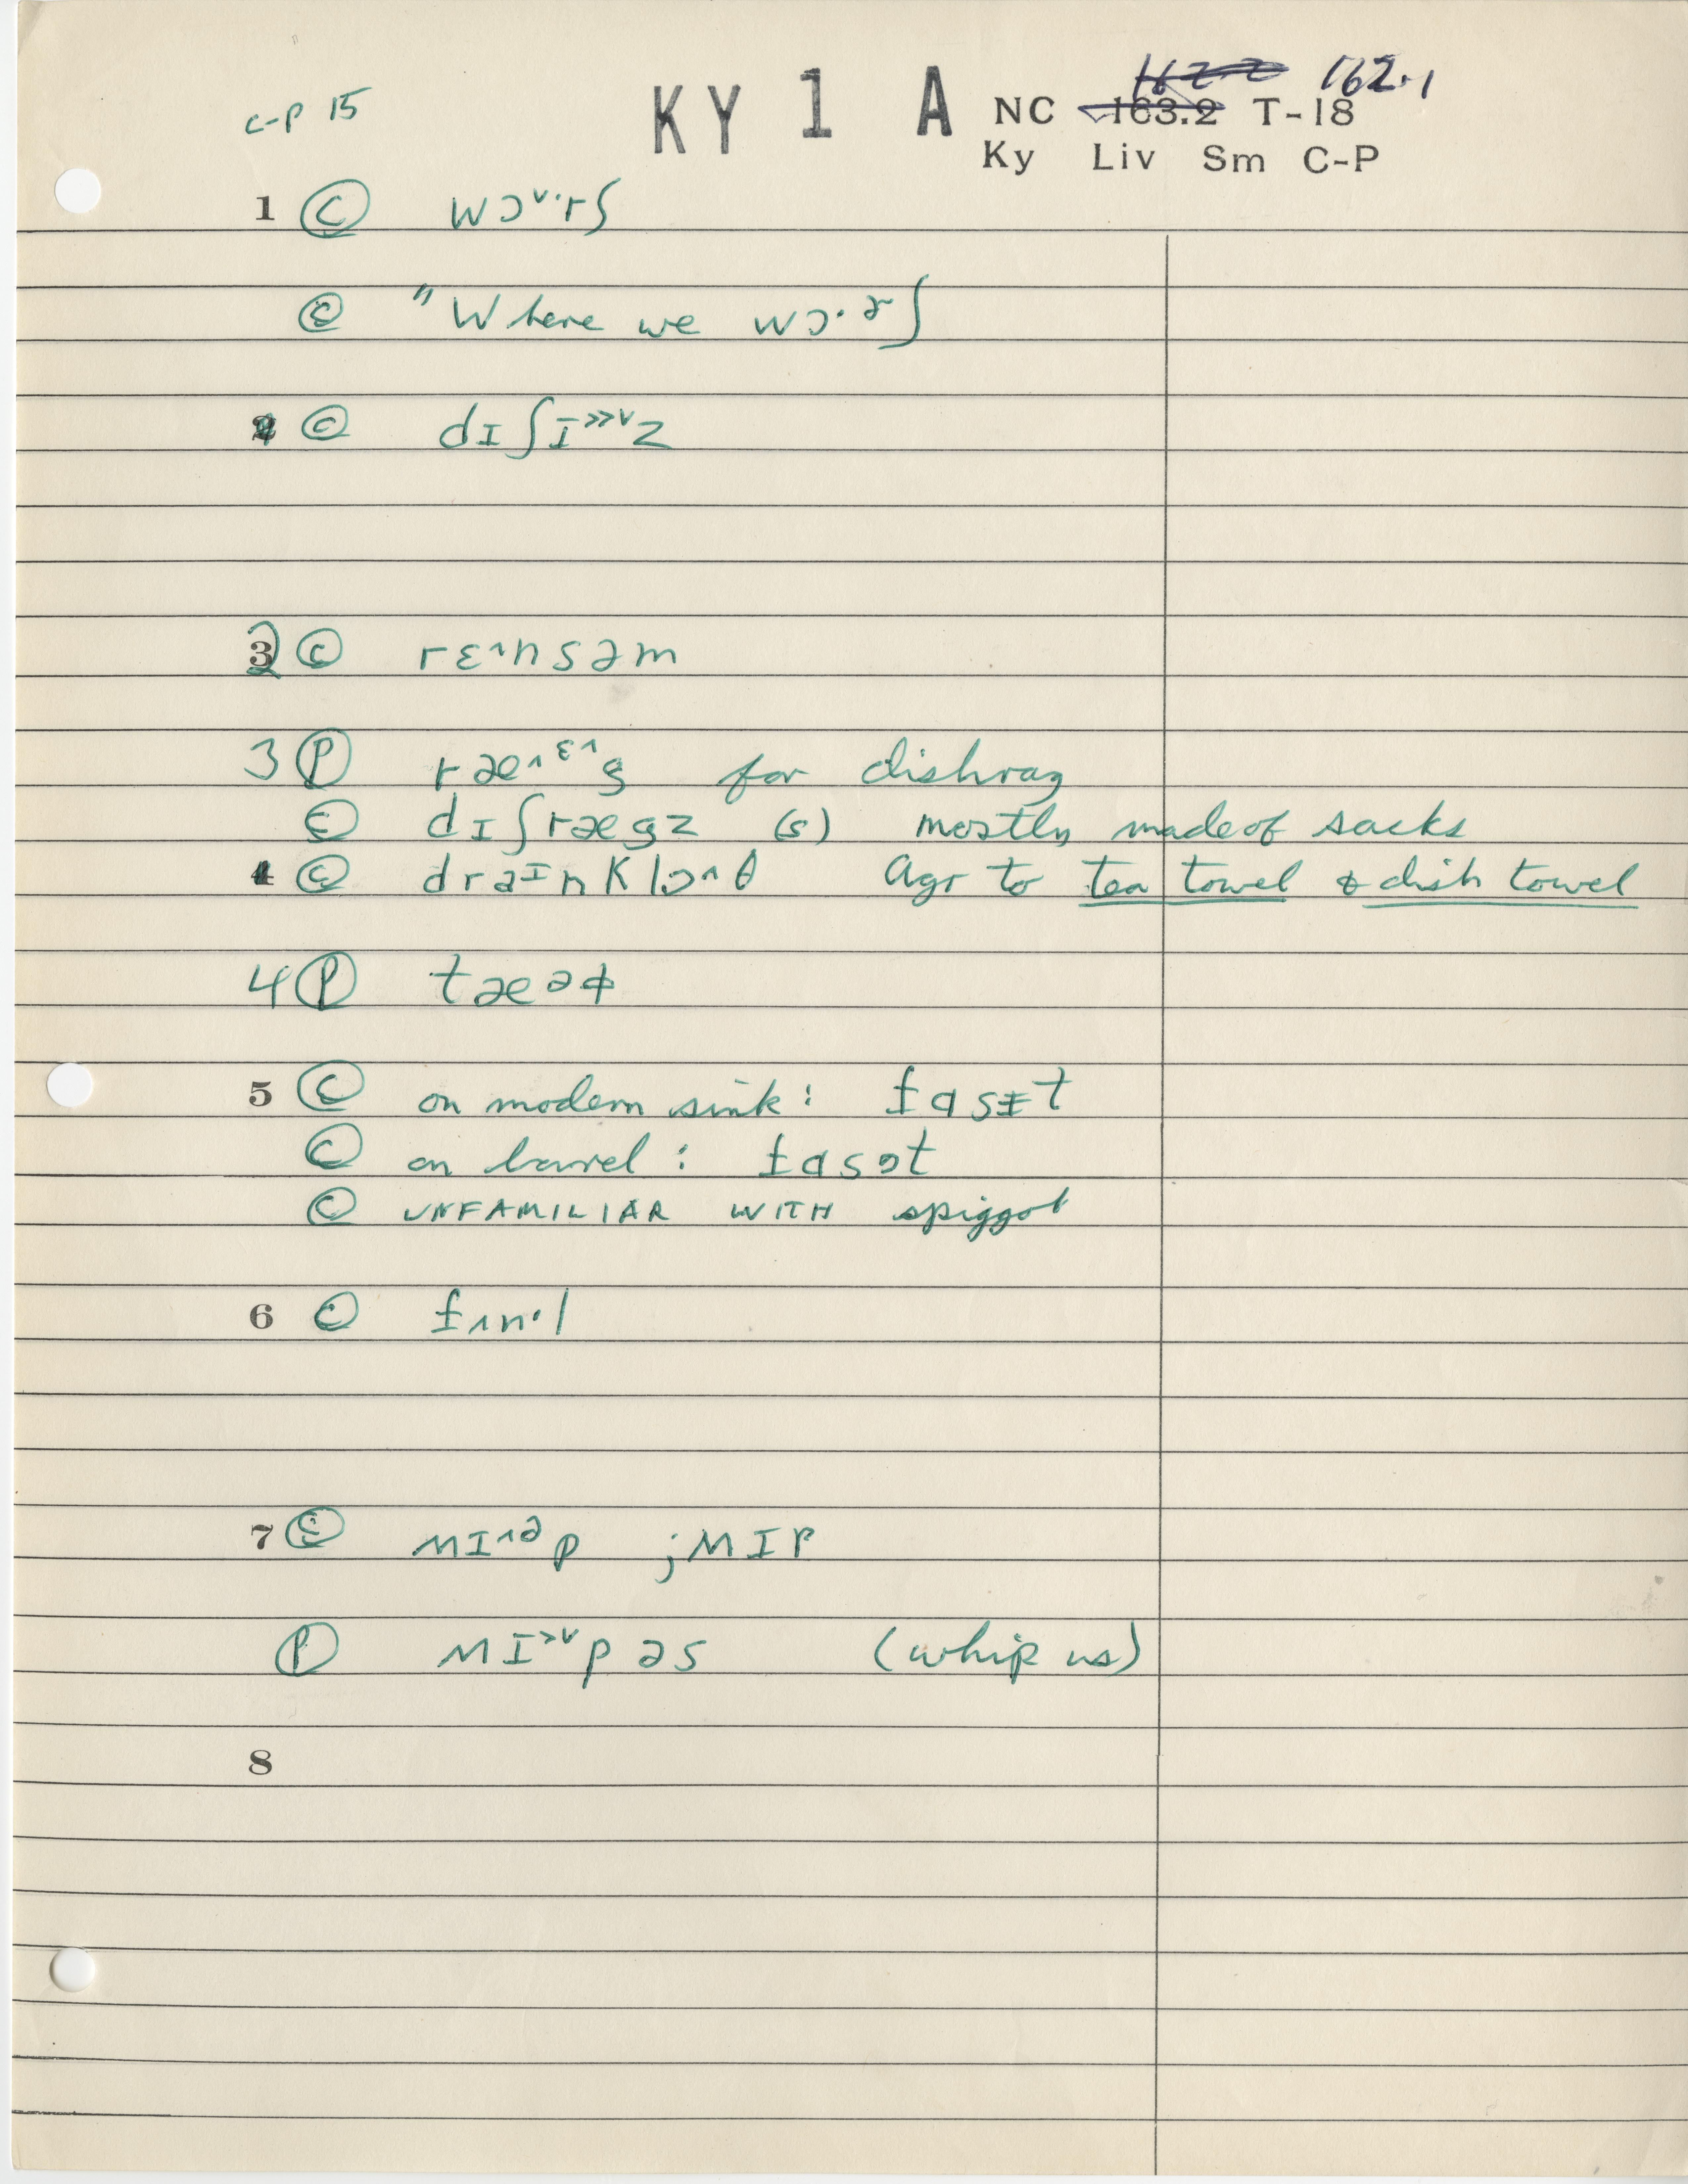 c-p 15
KY 1 A
162.2 162.1
NC 163.2 T-18
Ky Liv Sm C-P
1 Ⓒ wɔ˅·rʃ
Ⓒ " Where we wɔ·ɚʃ
Ⓒ dɪʃɪ˃˃˅z
2 Ⓒ rɛ˄nsəm
3 Ⓟ ræ˄ᵋ˄g for dishrag
Ⓒ dɪʃrægz (s) mostly made of sacks
4 Ⓒ draᶦnklɔ˄θ Agr to tea towel & dish towel
4 Ⓟ tæəɸ
5 Ⓒ on modern sink: fɑsɨt
Ⓒ on barrel: fɑsət
Ⓒ UNFAMILIAR WITH spiggot
6 Ⓒ fʌn·l
7 Ⓒ ʍɪ˄ᵊp ; ʍɪp
Ⓟ ʍɪ˃˅pəs (whip us)
8